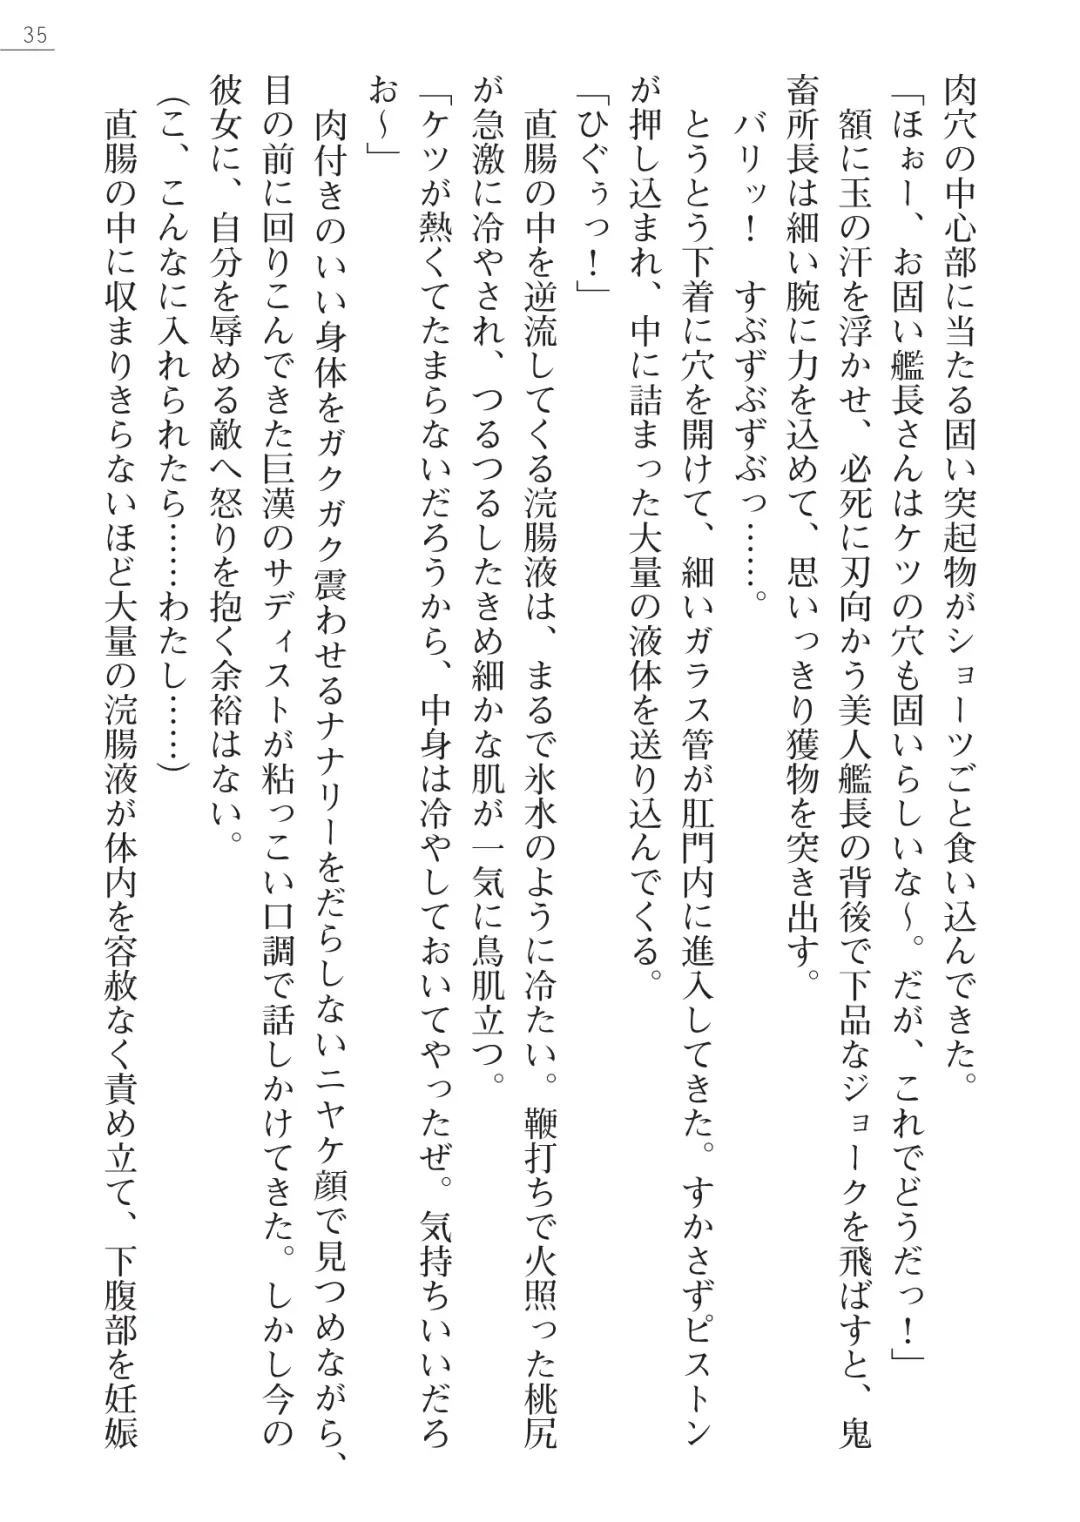 35
肉穴の中心部に当たる固い突起物がショーツごと食い込んできた。
「ほぉー、お固い艦長さんはケツの穴も固いらしいな〜。だが、これでどうだっ！」
額に玉の汗を浮かせ、必死に刃向かう美人艦長の背後で下品なジョークを飛ばすと、鬼
畜所長は細い腕に力を込めて、思いっきり獲物を突き出す。
バリッ！　すぶずぶずぶっ……。
とうとう下着に穴を開けて、細いガラス管が肛門内に進入してきた。すかさずピストン
が押し込まれ、中に詰まった大量の液体を送り込んでくる。
「ひぐぅっ！」
直腸の中を逆流してくる浣腸液は、まるで氷水のように冷たい。鞭打ちで火照った桃尻
が急激に冷やされ、つるつるしたきめ細かな肌が一気に鳥肌立つ。
「ケツが熱くてたまらないだろうから、中身は冷やしておいてやったぜ。気持ちいいだろ
お〜」
肉付きのいい身体をガクガク震わせるナナリーをだらしないニヤケ顔で見つめながら、
目の前に回りこんできた巨漢のサディストが粘っこい口調で話しかけてきた。しかし今の
彼女に、自分を辱める敵へ怒りを抱く余裕はない。
（こ、こんなに入れられたら……わたし……）
直腸の中に収まりきらないほど大量の浣腸液が体内を容赦なく責め立て、下腹部を妊娠